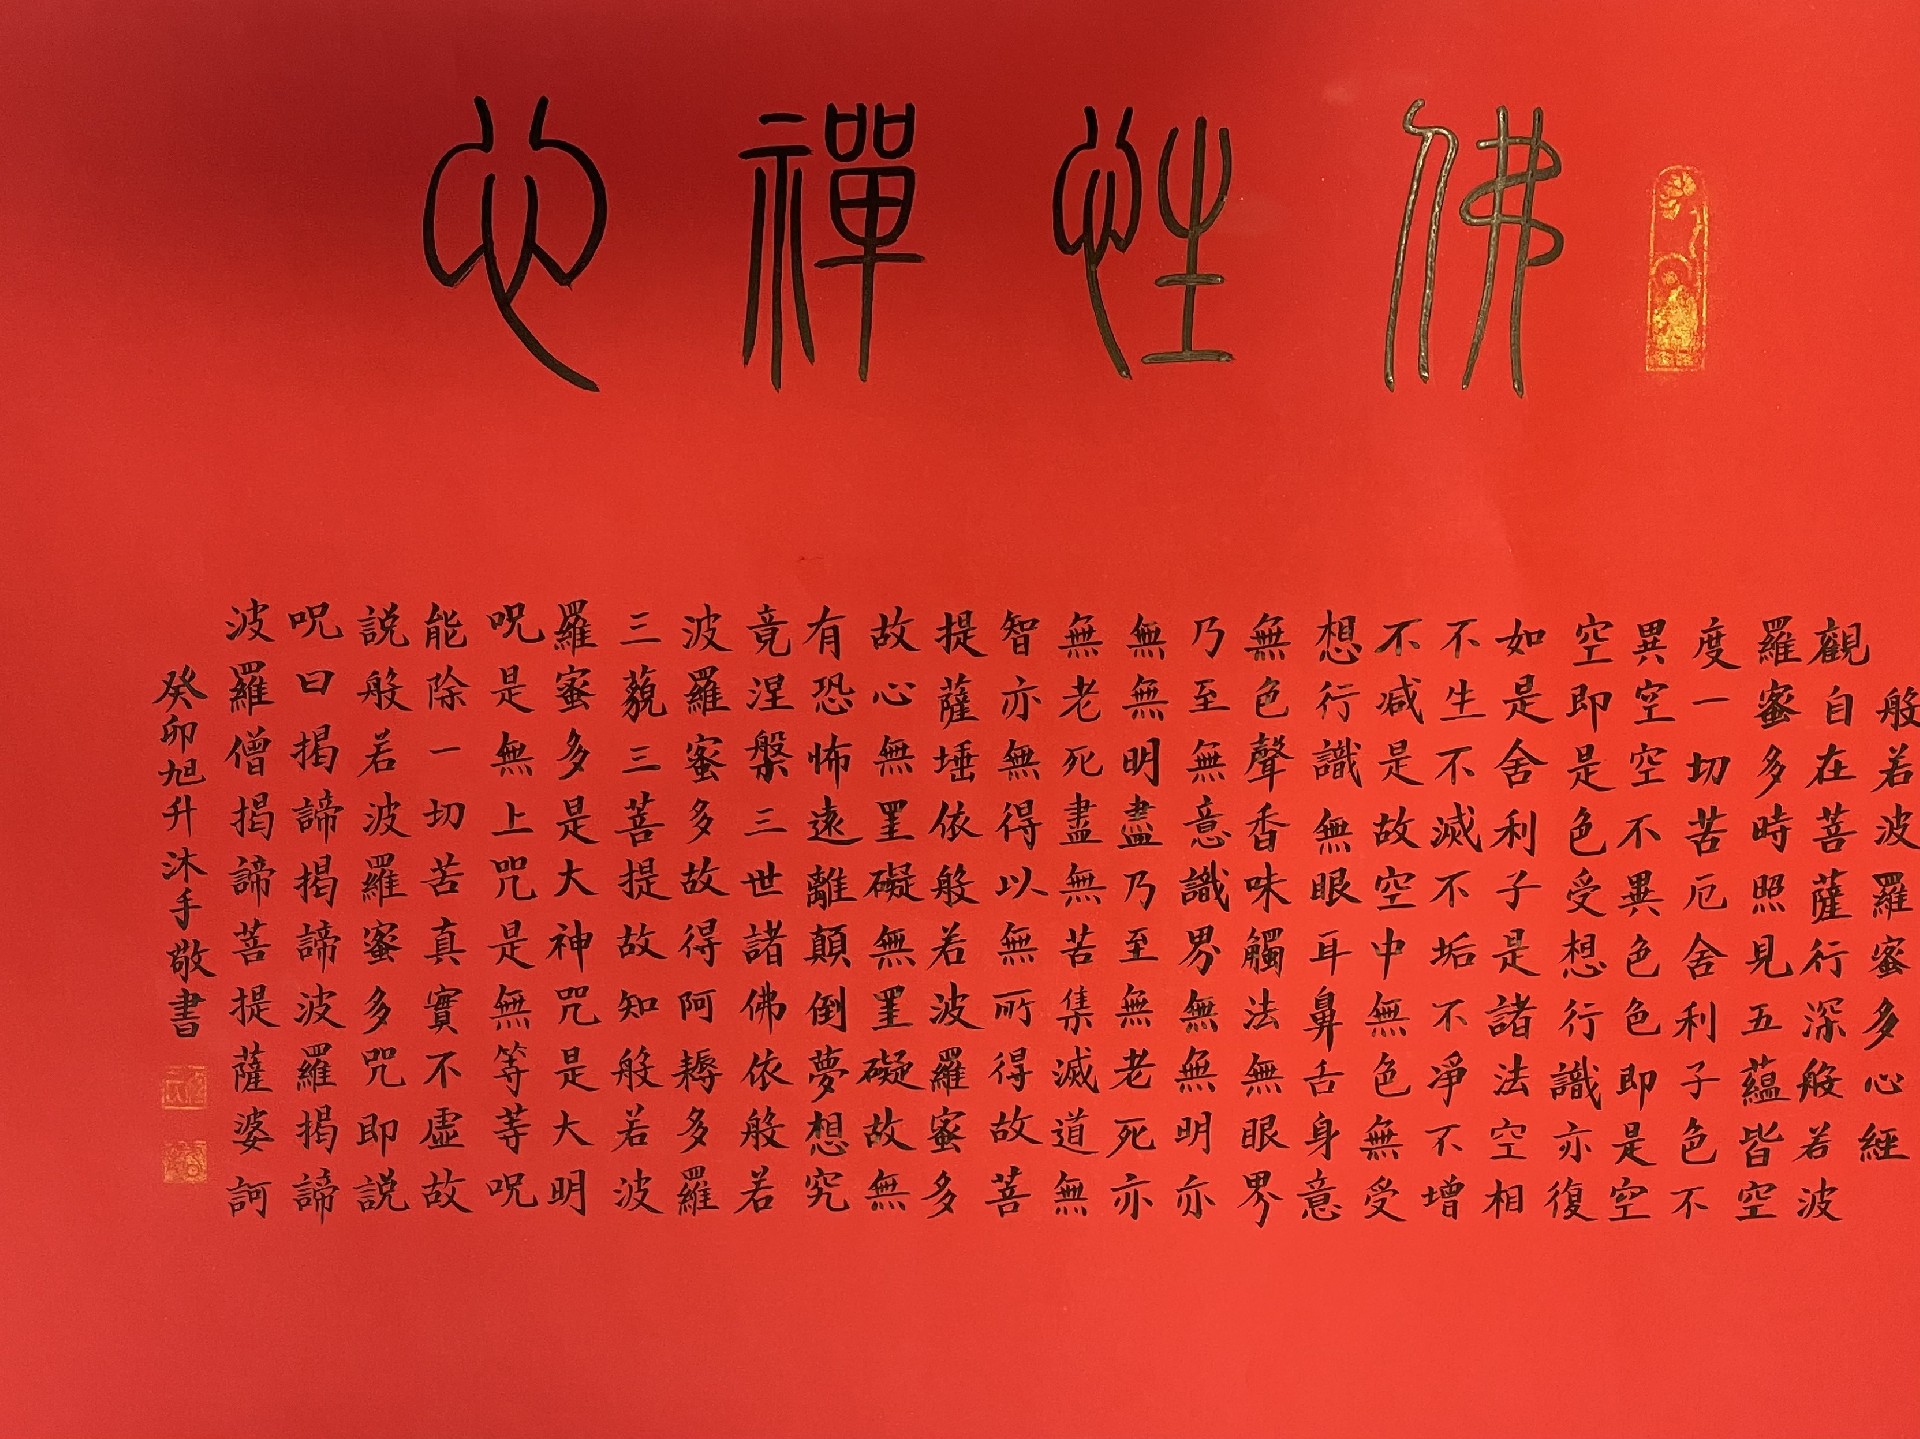 佛性禪心
般若波羅蜜多心經
觀自在菩薩行深般若波
羅蜜多時照見五蘊皆空
度一切苦厄舍利子色不
異空空不異色色即是空
空即是色受想行識亦復
如是舍利子是諸法空相
不生不滅不垢不淨不增
不減是故空中無色無受
想行識無眼耳鼻舌身意
無色聲香味觸法無眼界
乃至無意識界無無明亦
無無明盡乃至無老死亦
無老死盡無苦集滅道無
智亦無得以無所得故菩
提薩埵依般若波羅蜜多
故心無罣礙無罣礙故無
有恐怖遠離顛倒夢想究
竟涅槃三世諸佛依般若
波羅蜜多故得阿耨多羅
三藐三菩提故知般若波
羅蜜多是大神咒是大明
呪是無上咒是無等等呪
能除一切苦真實不虛故
説般若波羅蜜多咒即説
呪曰揭諦揭諦波羅揭諦
波羅僧揭諦菩提薩婆訶
癸卯旭升沐手敬書